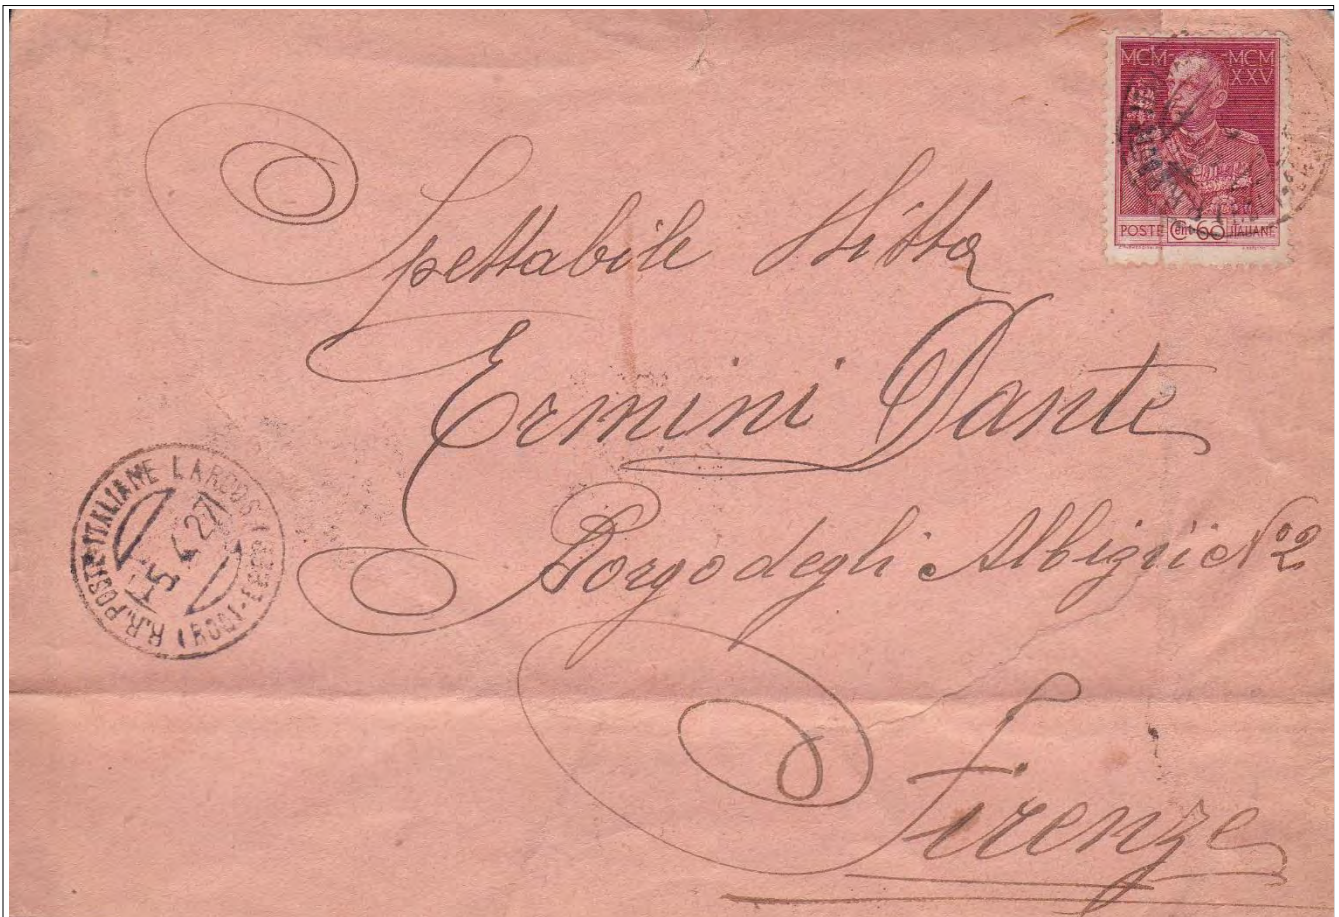 MCM MCM
XXV
POSTE Cent 60 ITALIANE
Spettabile Ditta
Ermini Dante
Borgo degli Albizii N° 2
Firenze
R.R. POSTE ITALIANE LARDOS (EGEO-RODI)
5.4.27